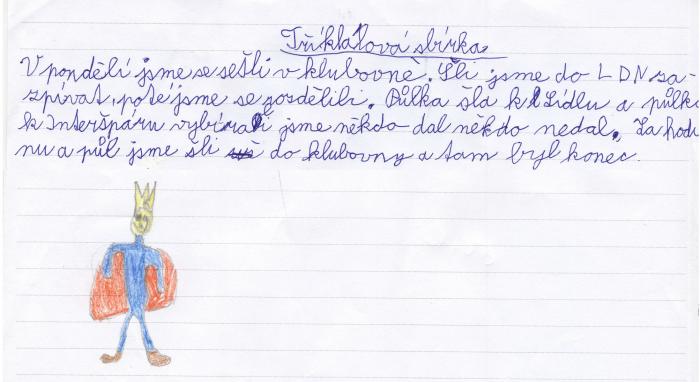 Tříkrálová sbírka
V pondělí jsme se sešli v klubovně. Šli jsme do LDN za-
zpívat, poté jsme se rozdělili. Půlka šla k Lídlu a půlka
k Interšpáru vybírali jsme někdo dal někdo nedal. Za hodi
nu a půl jsme šli do klubovny a tam byl konec.